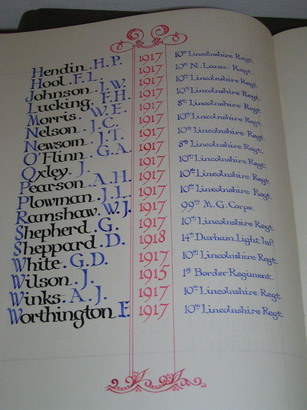 Hendin. H.P. 1917 10th Lincolnshire Regt.
Hool. F.I. 1917 10th N. Lancs. Regt.
Johnson. J.W. 1917 10th Lincolnshire Regt.
Lucking. F.H. 1917 10th Lincolnshire Regt.
Morris. W.E. 1917 8th Lincolnshire Regt.
Nelson. J.C. 1917 10th Lincolnshire Regt.
Newsom. J.T. 1917 10th Lincolnshire Regt.
O'Flinn. G.A. 1917 8th Lincolnshire Regt.
Oxley. J. 1917 10th Lincolnshire Regt.
Pearson. A.H. 1917 10th Lincolnshire Regt.
Plowman. J.L. 1917 10th Lincolnshire Regt.
Ramshaw. W.J. 1917 99th M.G. Corps.
Shepherd. G. 1917 10th Lincolnshire Regt.
Sheppard. D. 1918 14th Durham Light Inf.
White. G.D. 1917 10th Lincolnshire Regt.
Wilson. J. 1915 1st Border Regiment.
Winks. A.J. 1917 10th Lincolnshire Regt.
Worthington. F. 1917 10th Lincolnshire Regt.